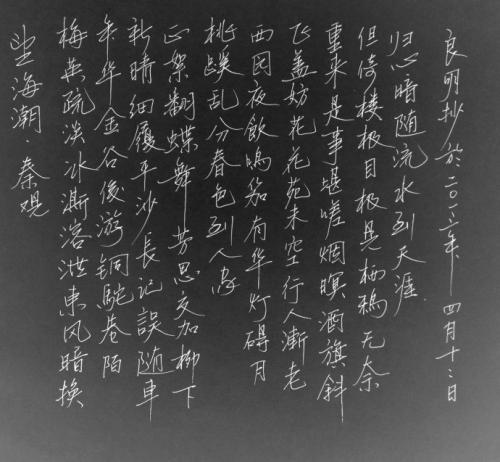 望海潮·秦观
梅英疏淡冰澌溶洩东风暗换
年华金谷俊游铜驼巷陌
新晴细履平沙长记误随車
正絮翻蝶舞芳思交加柳下
桃蹊乱分春色到人家
西园夜飲鸣笳有华灯碍月
飞盖妨花花苑未空行人渐老
重来是事堪嗟烟暝酒旗斜
但倚楼极目极見栖鸦无奈
归心暗随流水到天涯
良明抄於二〇二三年四月十二日